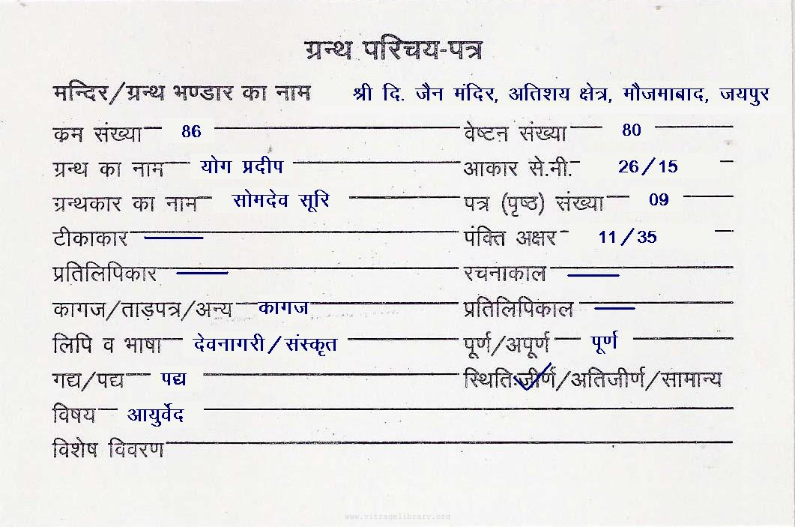 ग्रन्थ परिचय-पत्र
मन्दिर/ग्रन्थ भण्डार का नाम श्री दि. जैन मंदिर, अतिशय क्षेत्र, मौजमाबाद, जयपुर
कम संख्या 86 वेष्टन संख्या 80
ग्रन्थ का नाम योग प्रदीप आकार से.मी. 26/15
ग्रन्थकार का नाम सोमदेव सूरि पत्र (पृष्ठ) संख्या 09
टीकाकार पंक्ति अक्षर 11/35
प्रतिलिपिकार रचनाकाल
कागज/ताड़पत्र/अन्य कागज प्रतिलिपिकाल
लिपि व भाषा देवनागरी/संस्कृत पूर्ण/अपूर्ण पूर्ण
गद्य/पद्य पद्य स्थिति:जीर्ण/अतिजीर्ण/सामान्य
विषय आयुर्वेद
विशेष विवरण